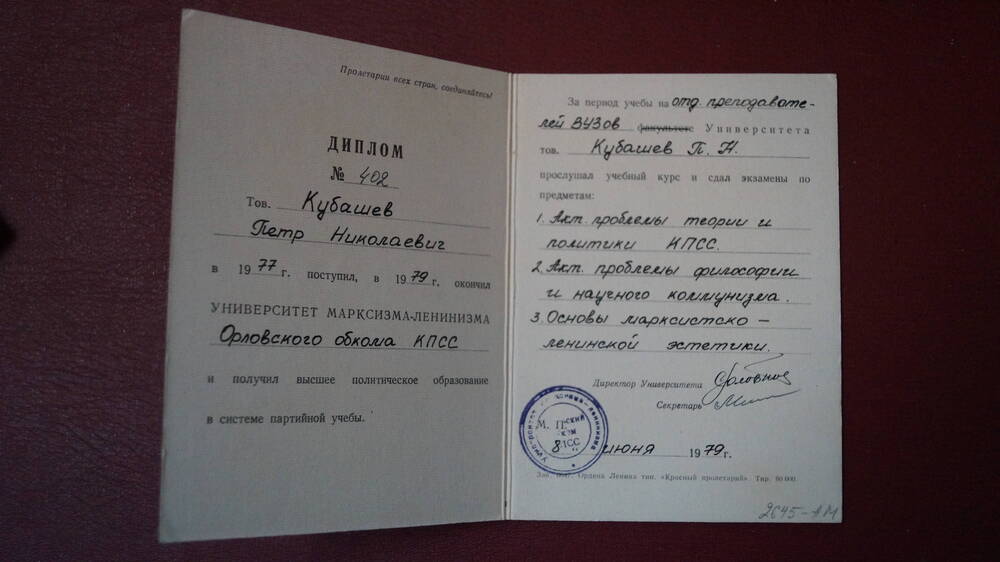 Пролетарии всех стран, соединяйтесь!
ДИПЛОМ
№ 402
Тов. Кубашев
Петр Николаевич
в 1977 г. поступил, в 1979 г. окончил
УНИВЕРСИТЕТ МАРКСИЗМА-ЛЕНИНИЗМА
Орловского обкома КПСС
и получил высшее политическое образование
в системе партийной учебы.
За период учебы на отд. преподавате-
лей ВУЗов факультете Университета
тов. Кубашев П. Н.
прослушал учебный курс и сдал экзамены по
предметам:
1. Акт. проблемы теории и
политики КПСС.
2. Акт. проблемы философии
и научного коммунизма.
3. Основы марксистско –
ленинской эстетики.
Директор Университета
Секретарь
М. П.
8 июня 1979 г.
Ордена Ленина тип. «Красный пролетарий». Тир.
2645-АМ